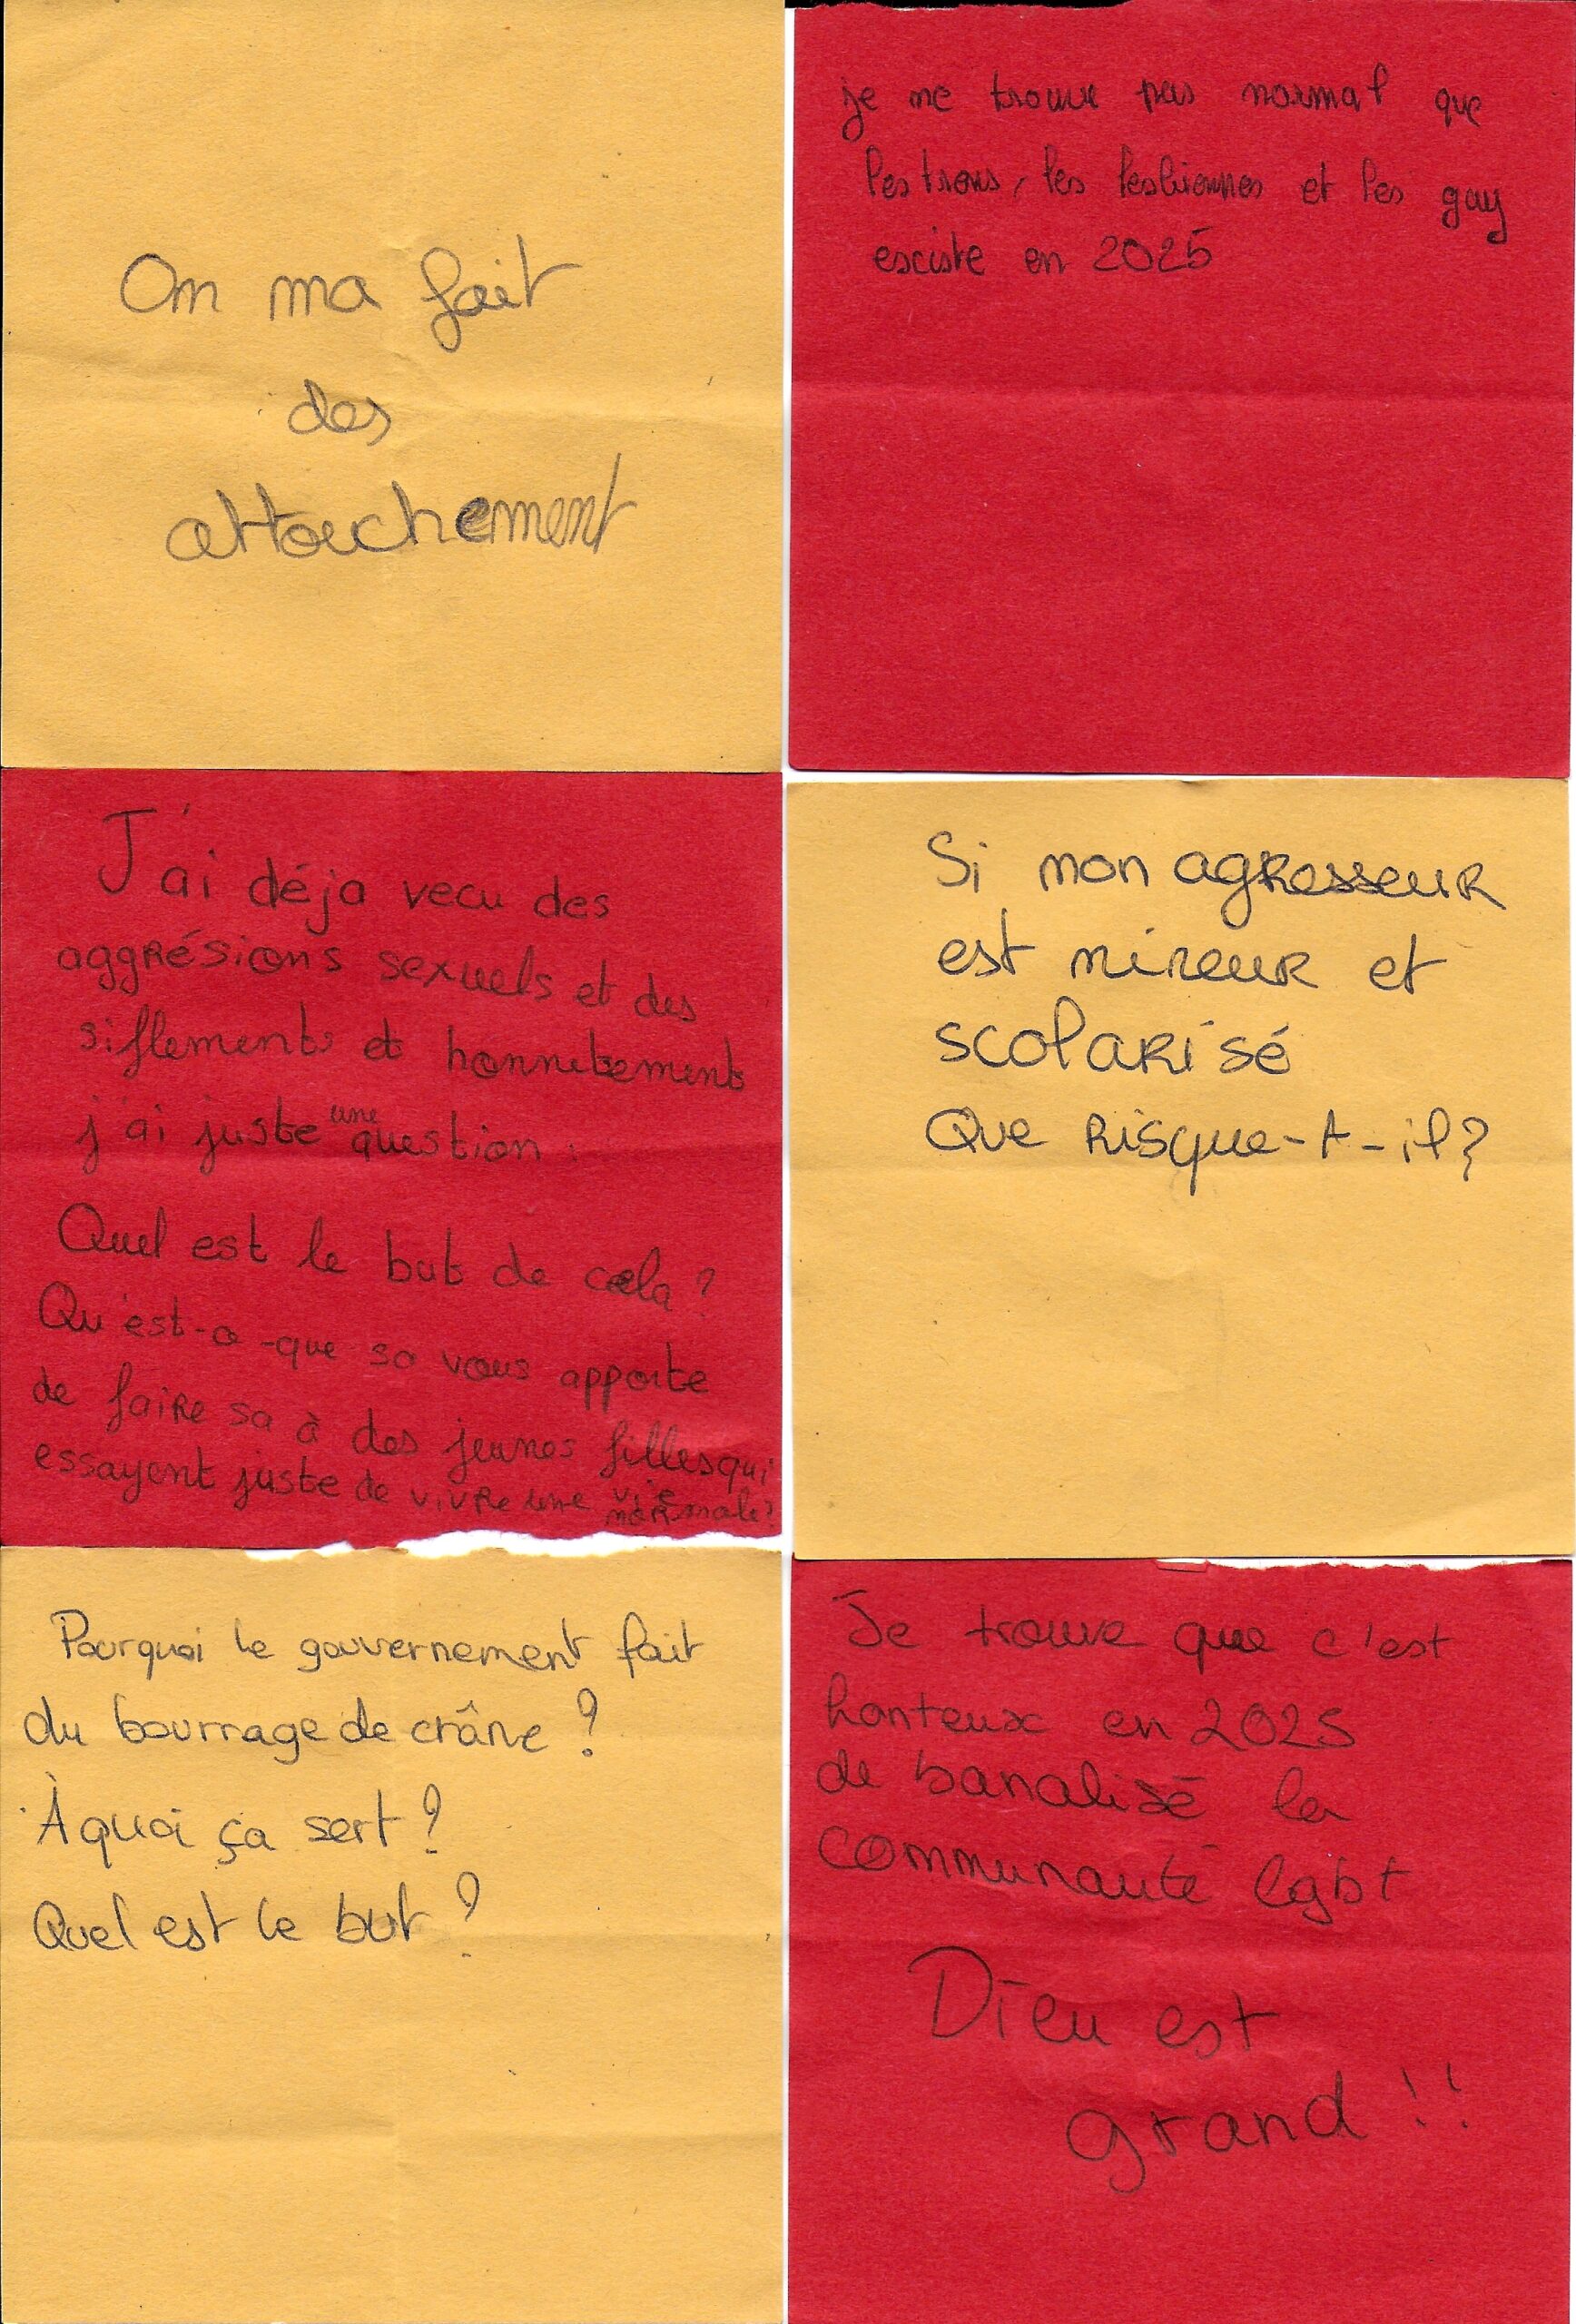 On ma fait
des
attouchement
je ne trouve pas normal que
les trans, les lesbiennes et les gay
exciste en 2025
J'ai déja vecu des
aggrésions sexuels et des
siflements et honnetements
j'ai juste une question :
Quel est le but de cela ?
Qu'est-a-que sa vous apporte
de faire sa à des jeunes filles qui
essayent juste de vivre une vie
normale ?
Si mon agresseur
est mineur et
scolarisé
Que risque-t-il ?
Pourquoi le gouvernement fait
du bourrage de crâne ?
À quoi ça sert ?
Quel est le but ?
Je trouve que c'est
honteux en 2025
de banalisé la
communauté lgbt
Dieu est
grand !!